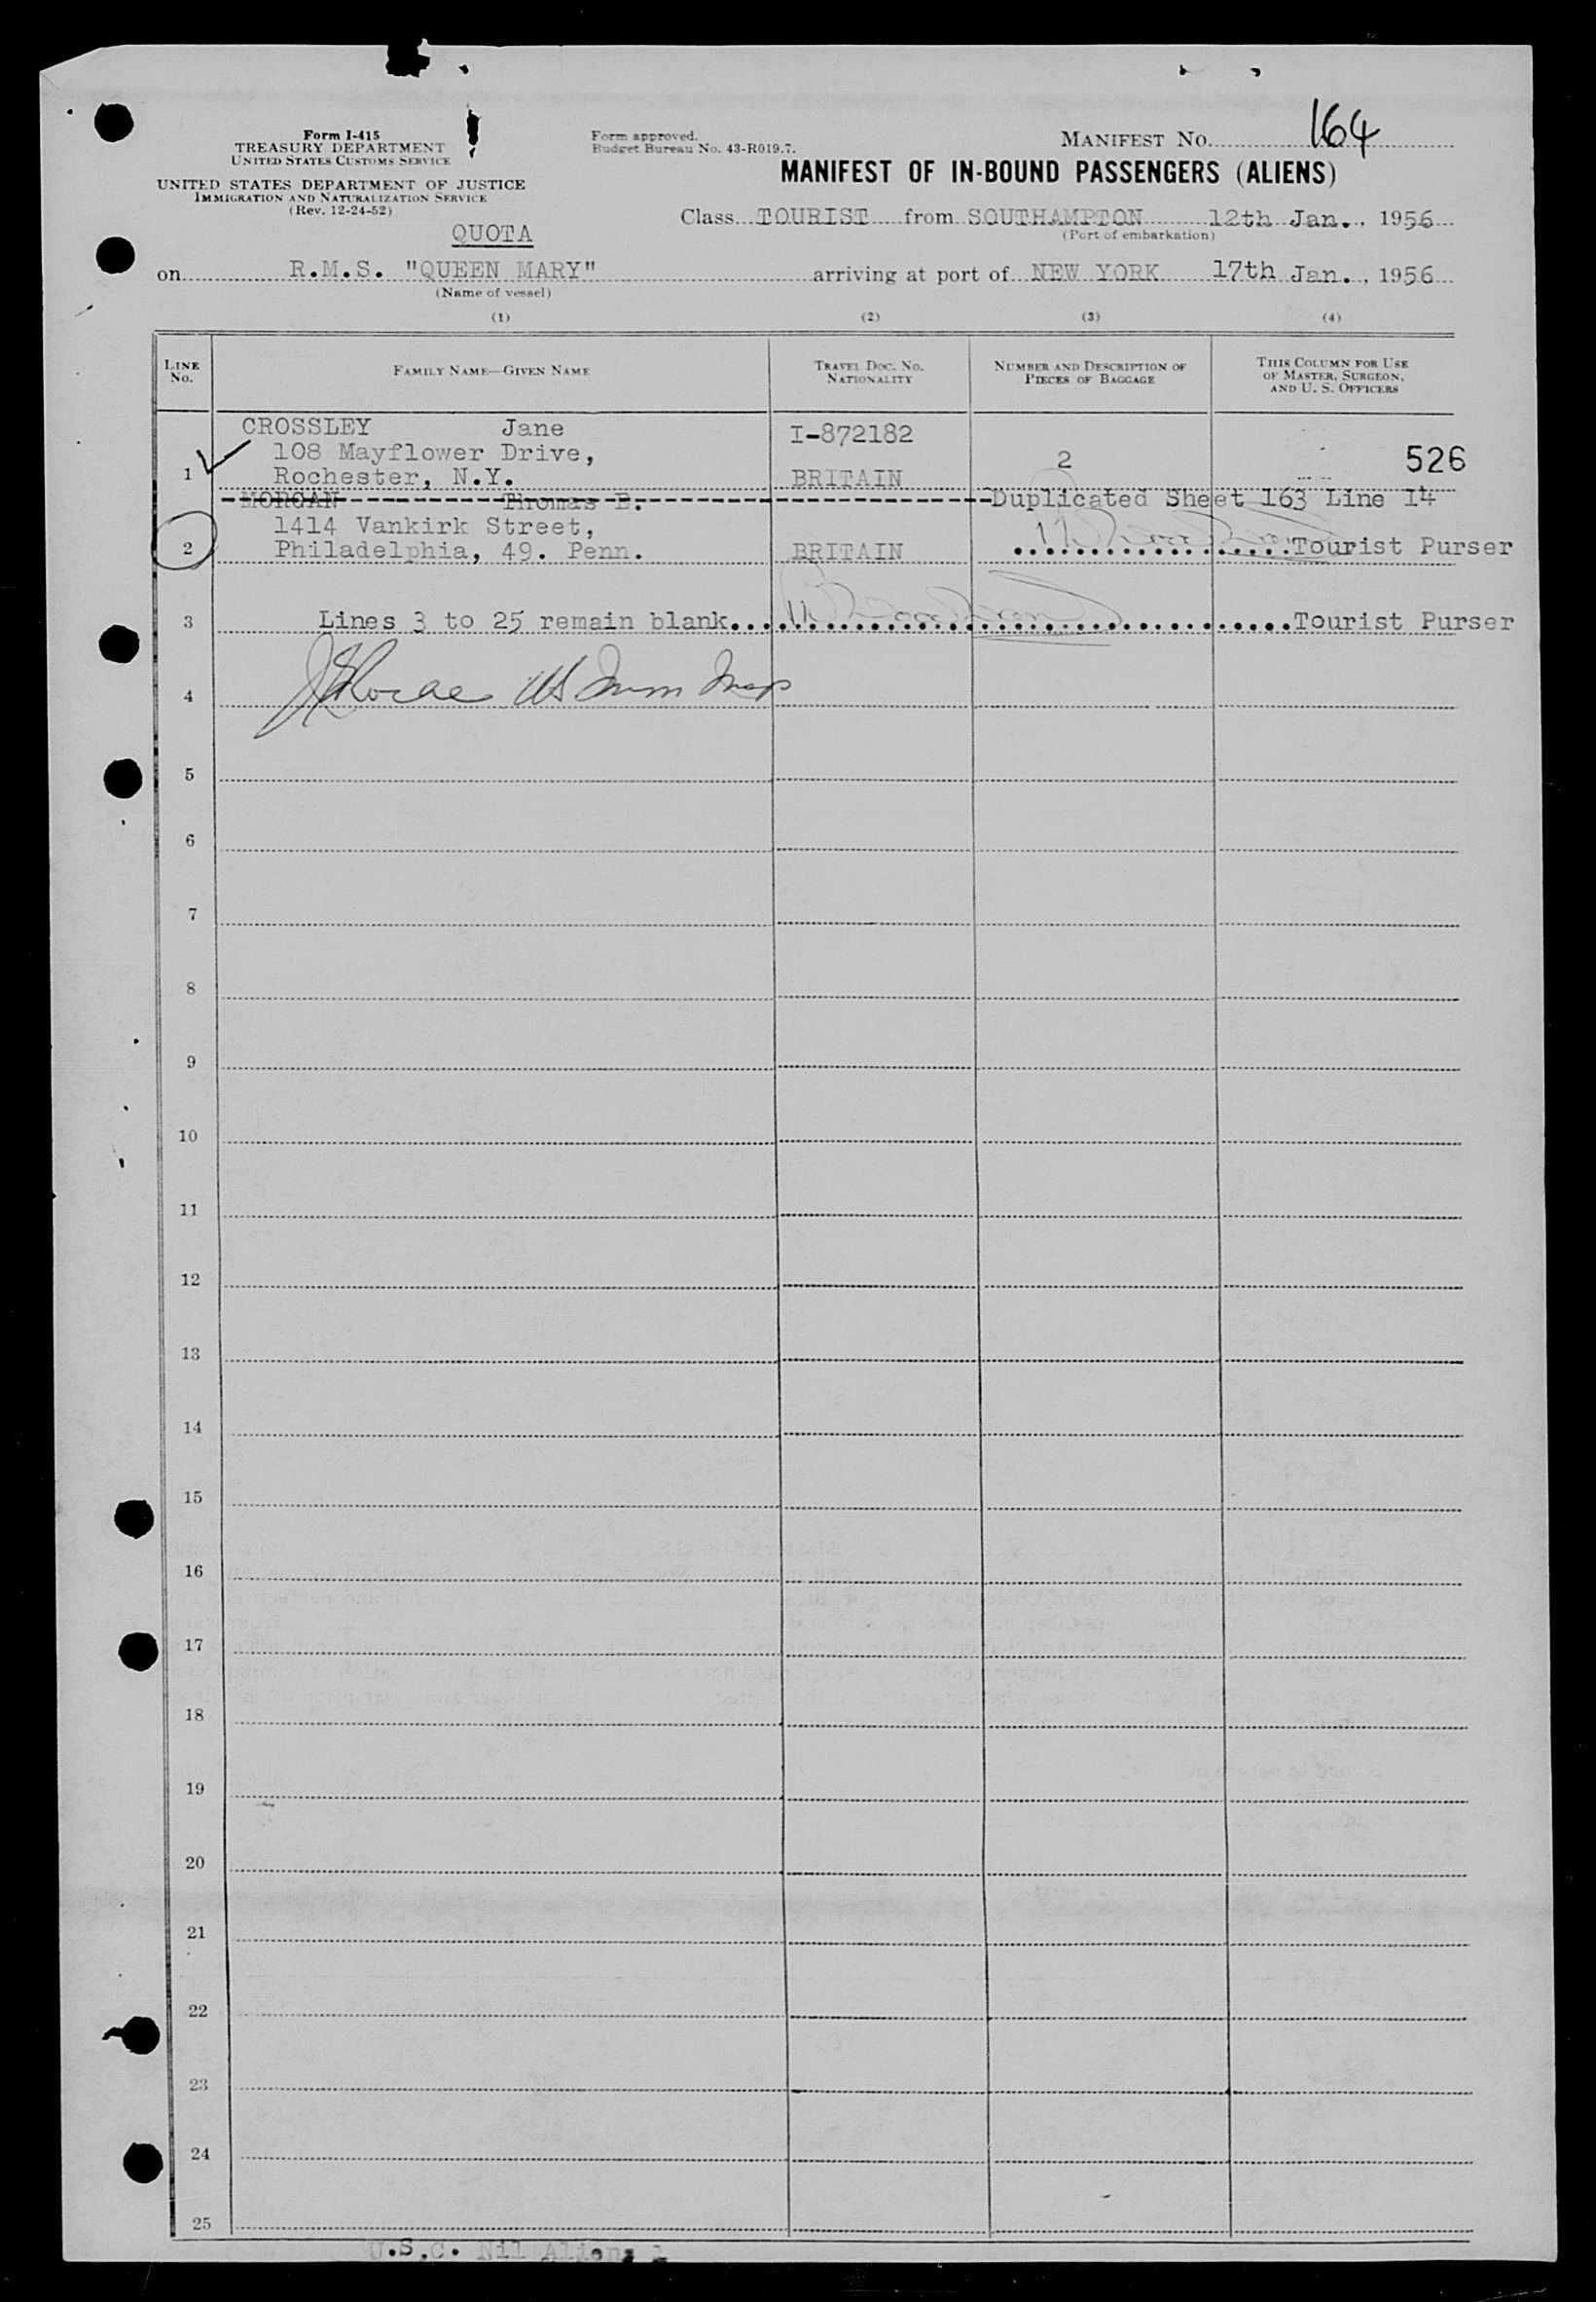 Form I-415
TREASURY DEPARTMENT
UNITED STATES CUSTOMS SERVICE
UNITED STATES DEPARTMENT OF JUSTICE
IMMIGRATION AND NATURALIZATION SERVICE
(Rev. 12-24-52)
Form approved.
Budget Bureau No. 43-R019.7.
MANIFEST NO. 164
MANIFEST OF IN-BOUND PASSENGERS (ALIENS)
QUOTA
Class TOURIST from SOUTHAMPTON 12th Jan., 1956
(Port of embarkation)
on R.M.S. "QUEEN MARY" arriving at port of NEW YORK 17th Jan., 1956
(Name of vessel)
(1) (2) (3) (4)
LINE NO. FAMILY NAME—GIVEN NAME TRAVEL DOC. NO. NATIONALITY NUMBER AND DESCRIPTION OF PIECES OF BAGGAGE THIS COLUMN FOR USE OF MASTER, SURGEON, AND U. S. OFFICERS
CROSSLEY Jane I-872182
108 Mayflower Drive,
1 Rochester, N.Y. BRITAIN 2 526
MORGAN Thomas E. Duplicated Sheet 163 Line 14
1414 Vankirk Street,
2 Philadelphia, 49. Penn. BRITAIN Tourist Purser
3 Lines 3 to 25 remain blank Tourist Purser
4
5
6
7
8
9
10
11
12
13
14
15
16
17
18
19
20
21
22
23
24
25
U.S.C. Nil Aliens 1